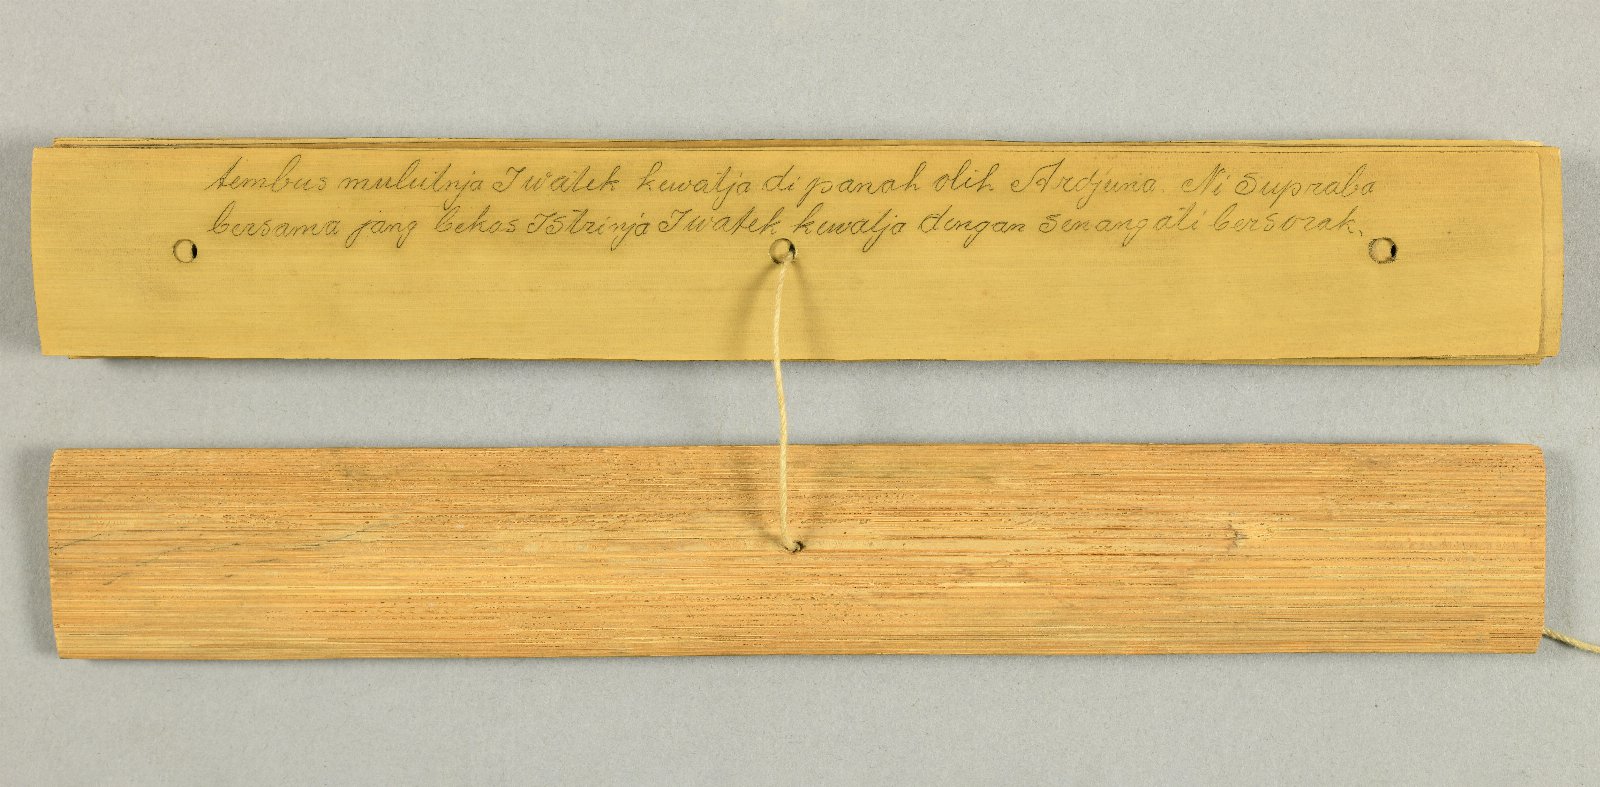 tembus mulutnja I watek kewatja di panah olih Ardjuna. Ni Supraba
bersama jang bekas Istrinja I watek kewatja dengan senang ati bersorak.